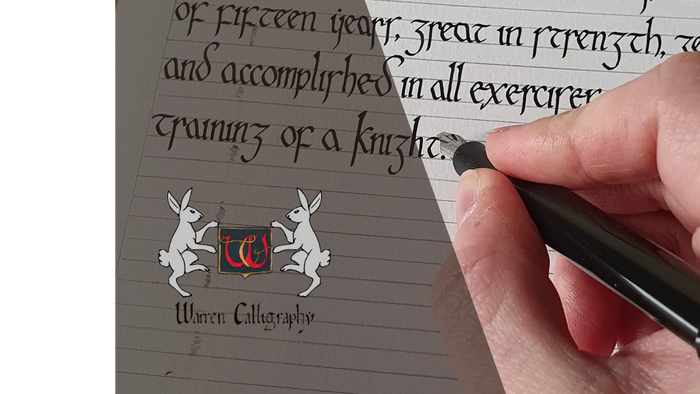 of fifteen years, great in strength,
and accomplished in all exercises
training of a knight.
W
Warren Calligraphy